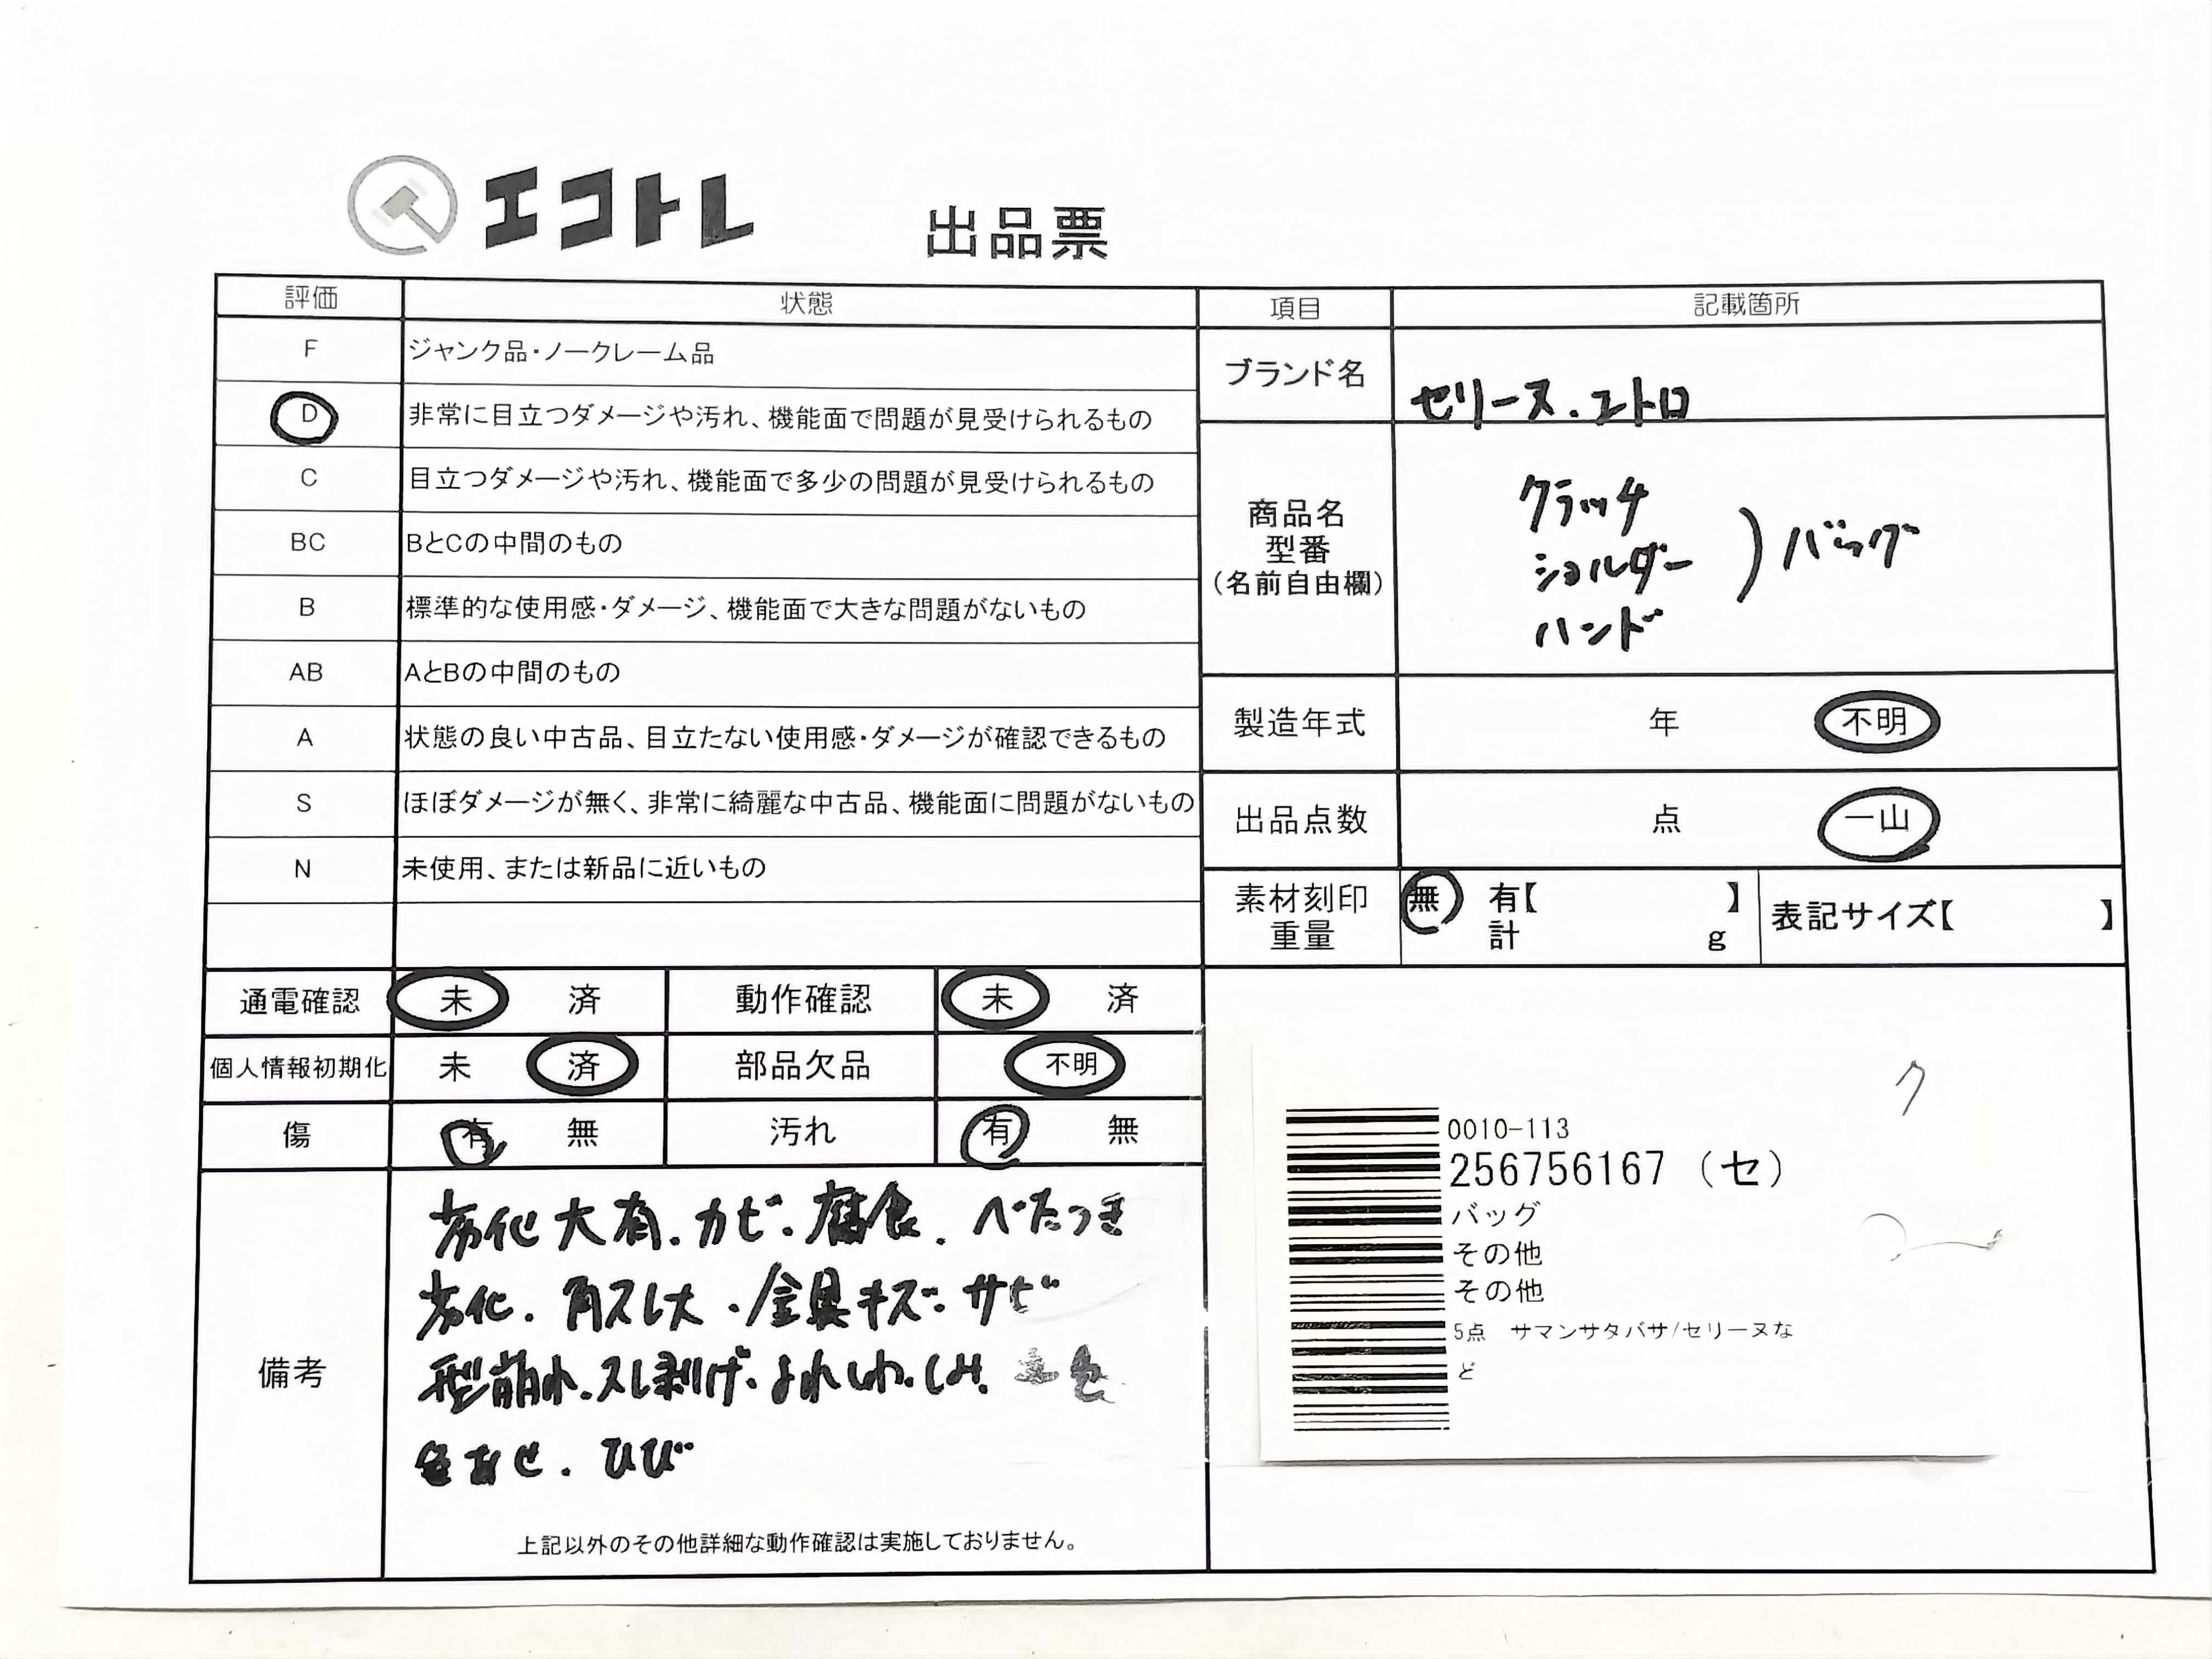 エコトレ
出品票
評価 状態
F ジャンク品・ノークレーム品
D 非常に目立つダメージや汚れ、機能面で問題が見受けられるもの
C 目立つダメージや汚れ、機能面で多少の問題が見受けられるもの
BC BとCの中間のもの
B 標準的な使用感・ダメージ、機能面で大きな問題がないもの
AB AとBの中間のもの
A 状態の良い中古品、目立たない使用感・ダメージが確認できるもの
S ほぼダメージが無く、非常に綺麗な中古品、機能面に問題がないもの
N 未使用、または新品に近いもの
項目 記載箇所
ブランド名 セリーヌ.エトロ
商品名
型番
(名前自由欄)
クラッチ
ショルダー
ハンド
)バッグ
製造年式 年 不明
出品点数 点 一山
素材刻印 無 有【 】
重量 計 g
表記サイズ【 】
通電確認 未 済 動作確認 未 済
個人情報初期化 未 済 部品欠品 不明
傷 有 無 汚れ 有 無
備考
劣化大有.カビ.腐食.べたつき
劣化.角スレ大.金具キズ.サビ
型崩れ.スレ剥げ.よれしわ.しみ.
色あせ.ひび
上記以外のその他詳細な動作確認は実施しておりません。
ク
0010-113
256756167(セ)
バッグ
その他
その他
5点 サマンサタバサ/セリーヌな
ど